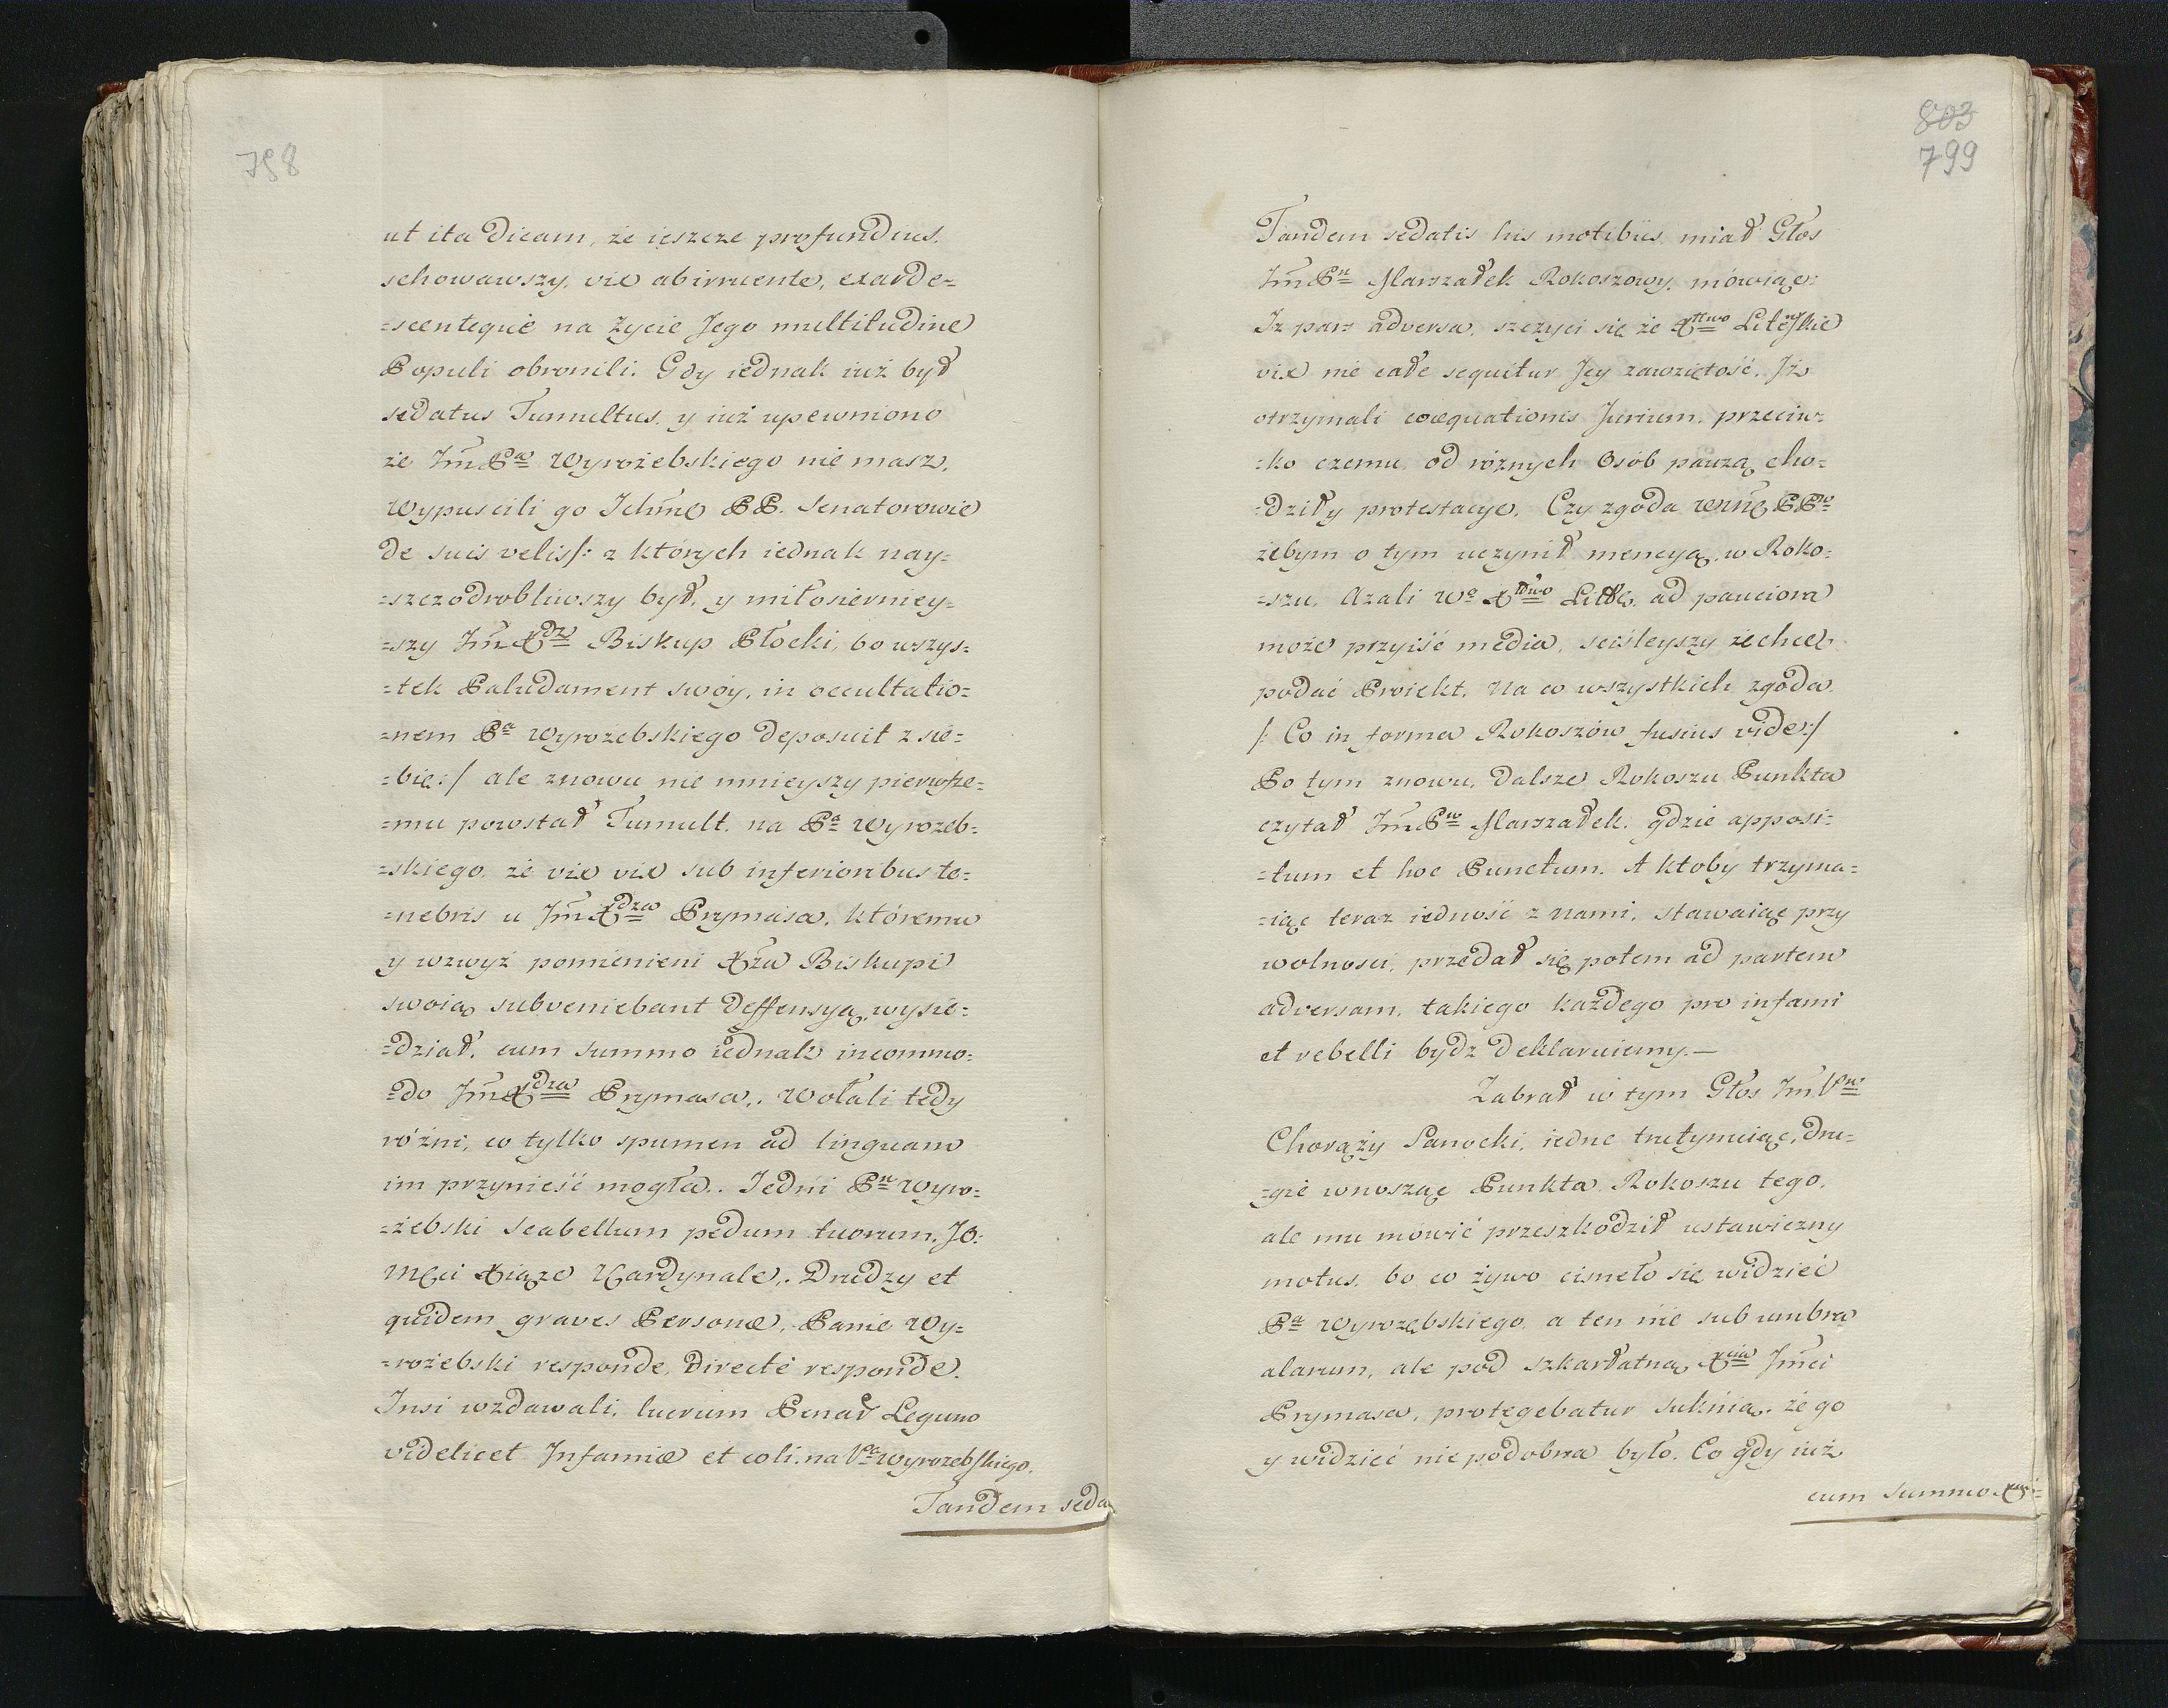 798
ut ita dicam, że ieszcze profundius
schowawszy, vix ab irruente, exarde=
=scenteque na życie Jego multitudine
Populi obronili. Gdy iednak iuż był
sedatus Tumultus, y iuż upewniono
że Jm̃Pa Wyrożebskiego nie masz,
Wypuscili go Ichm̃o PP. Senatorowie
de suis velis/: z których iednak nay=
=szczodrobliwszy był, y miłosierniey=
=szy Jm̃Xdz Biskup Płocki, bo wszys=
=tek Paludament swóy, in occultatio=
=nem Pa Wyrozebskiego deposuit z sie=
=bie:/ ale znowu nie mnieyszy pierwsze=
=mu powstał Tumult na Pa Wyrozeb=
=skiego, że vix vix sub inferioribus te=
=nebris u Jm̃Xdza Prymasa, któremu
y wzwyż pomienieni Xża Biskupi
swoią subveniebant deffensyą, wysie=
=dział, cum summo iednak incommo=
=do Jm̃Xdza Prymasa. Wołali tedy
różni, co tylko spumen ad linguam
im przynieść mogła. Jedni Pn Wyro=
=żebski Scabellum pedum tuorum, JO.
Mći Xiąże Kardynale. Drudzy et
quidem graves Personæ, Panie Wy=
=rożebski responde, directè responde.
Insi wzdawali, lucrum Penar Legumo
videlicet Infamiæ et coli. na Pa Wyrozebskiego.
Tandem seda
803
799
Tandem sedatis his motibus, miał Głos
Jm̃Pn Marszałek Rokoszowy, mówiąc:
Iz pars adversa, szczyci się że Xttwo Liteskie
vix nie całe sequitur Jey zawziętość, Jż
otrzymali coæquationis Jurium, przeciw=
=ko czemu, od róznych Osób pauzą cho=
=dziły protestacye. Czy zgoda PPw
żebym o tym uczynił mencyą w Roko=
=szu. Azali Wo Xttwo Litto, ad pauciora
może przyiść media, sciśleyszy zechce
podać Proiekt. Na co wszystkich zgoda
/: Co in forma Rokoszów fusius vide:/
Po tym znowu, dalsze Rokoszu Punkta
czytał Jm̃Pn Marszałek, gdzie apposi=
=tum et hoc Punctum. A ktoby trzyma=
=iąc teraz iedność z nami, stawaiąc przy
wolnosci, przedał się potem ad partem
adversam, takiego każdego pro infami
et rebelli bydz deklaruiemy.—
Zabrał w tym Głos Jm̃Pn
Chorąży Sanocki, iedne trutynuiąc, dru=
=gie wnosząc Punkta Rokoszu tego,
ale mu mówić przeszkodził ustawiczny
motus, bo co żywo cisneło się widzieć
Pa Wyrozębskiego, a ten nie sub umbra
alarum, ale pod szkarłatną Xcia Jm̃ci
Prymasa, protegebatur Suknią, że go
y widzieć nie podobna było. Co gdy iuż
cum summo